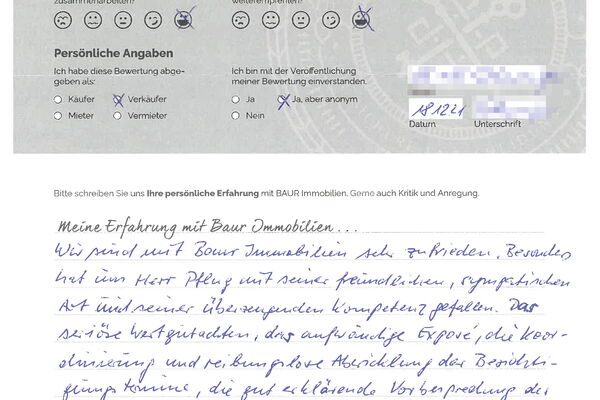 zusammenarbeiten? weiterempfehlen?
Persönliche Angaben
Ich habe diese Bewertung abge-
geben als:
Käufer Verkäufer
Mieter Vermieter
Ich bin mit der Veröffentlichung
meiner Bewertung einverstanden.
Ja Ja, aber anonym
Nein
18.12.21
Datum Unterschrift
Bitte schreiben Sie uns Ihre persönliche Erfahrung mit BAUR Immobilien. Gerne auch Kritik und Anregung.
Meine Erfahrung mit Baur Immobilien . . .
Wir sind mit Baur Immobilien sehr zufrieden. Besonders
hat uns Herr Pflug mit seiner freundlichen, sympatischen
Art und seiner überzeugenden Kompetenz gefallen. Das
seriöse Wertgutachten, das aufwändige Exposé, die Koor-
dinierung und reibungslose Abwicklung der Besichti-
gungstermine, die gut erklärende Vorbesprechung der